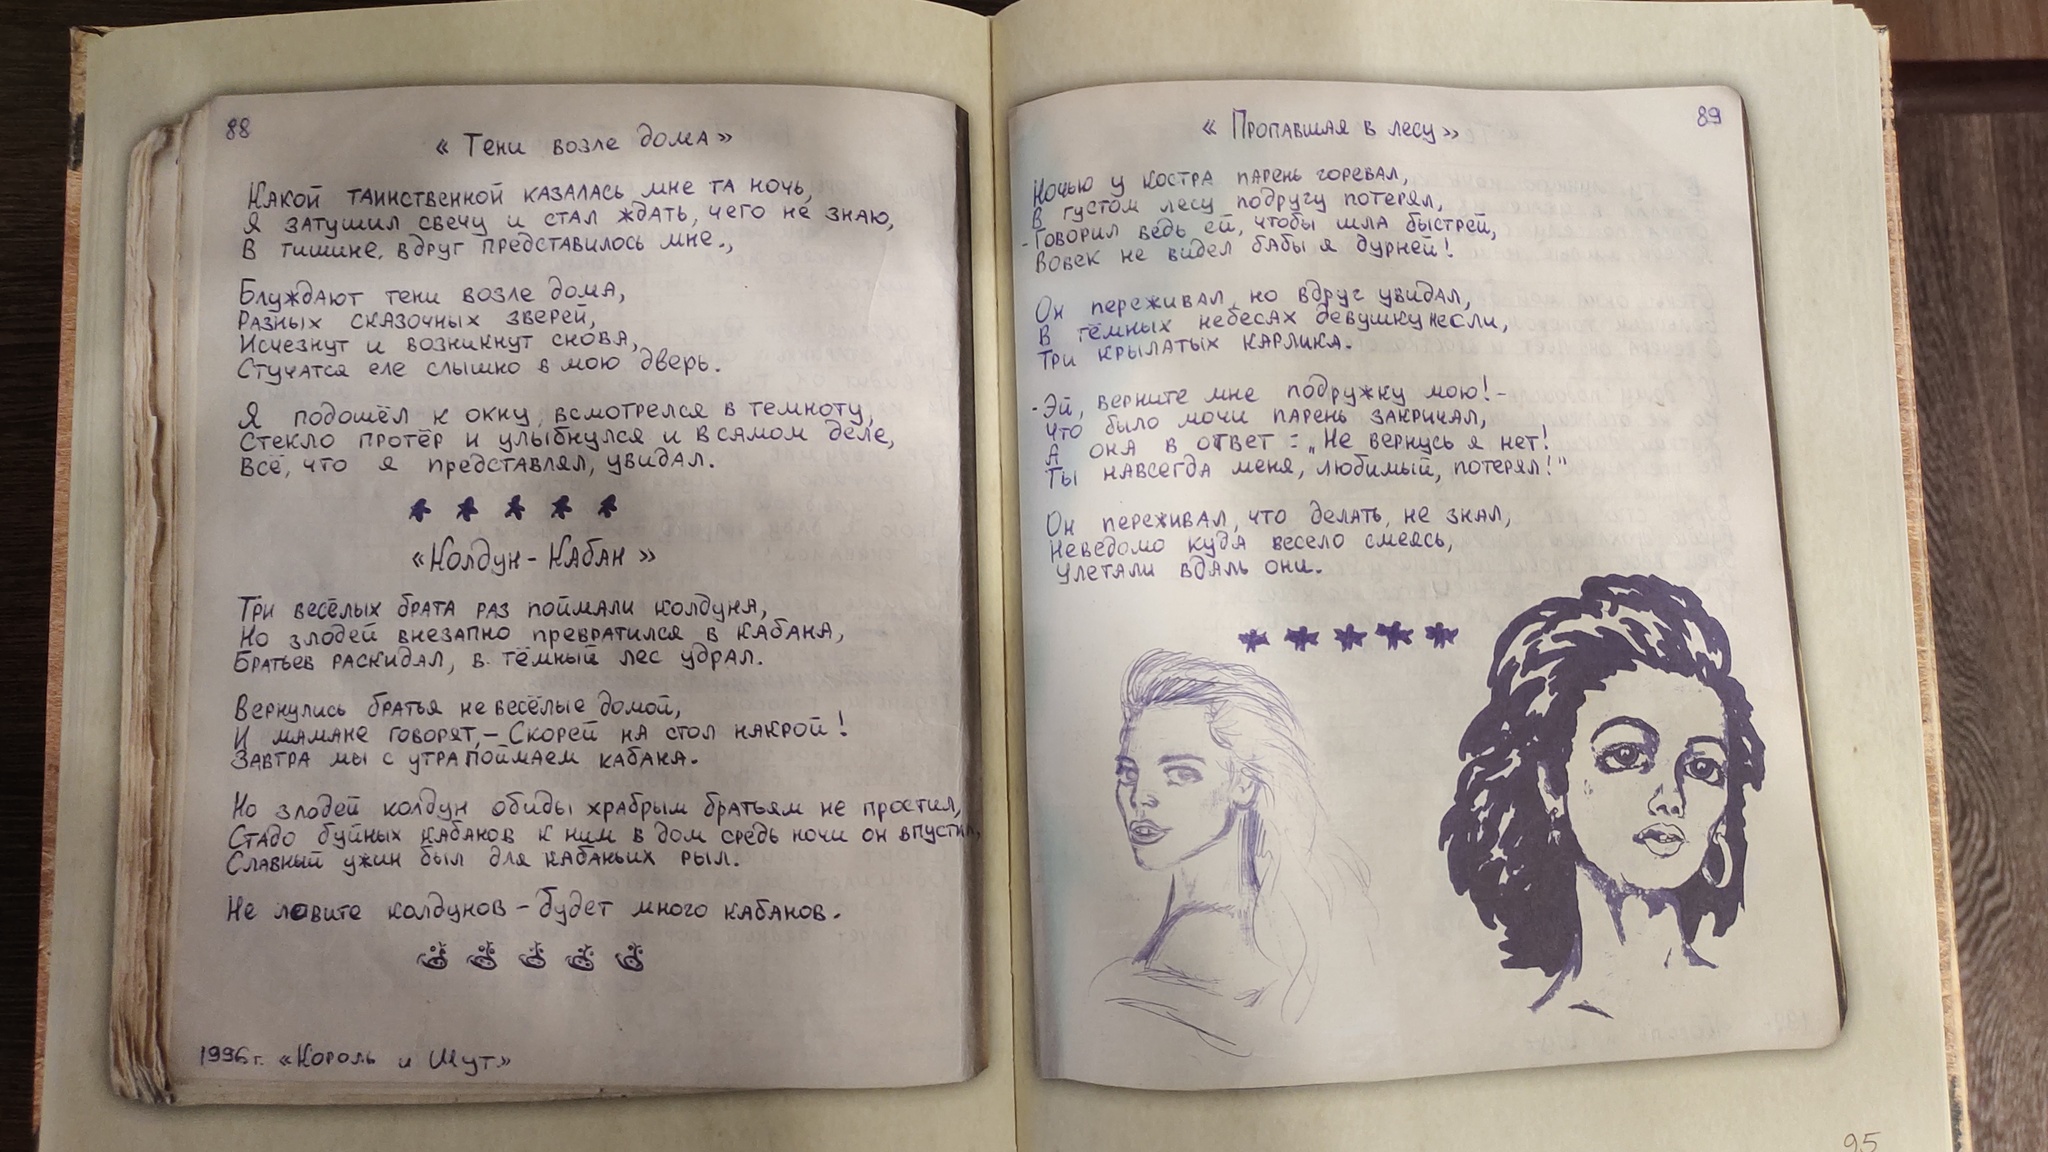 88
« Тени возле дома »
Какой таинственной казалась мне та ночь,
Я затушил свечу и стал ждать, чего не знаю,
В тишине, вдруг представилось мне.,
Блуждают тени возле дома,
Разных сказочных зверей,
Исчезнут и возникнут снова,
Стучатся еле слышно в мою дверь.
Я подошёл к окну, всмотрелся в темноту,
Стекло протёр и улыбнулся и в самом деле,
Всё, что я представлял, увидал.
«Колдун-Кабан »
Три весёлых брата раз поймали колдуна,
Но злодей внезапно превратился в кабана,
Братьев раскидал, в тёмный лес удрал.
Вернулись братья не весёлые домой,
И мамане говорят,– Скорей на стол накрой !
Завтра мы с утра поймаем кабана.
Но злодей колдун обиды храбрым братьям не простил,
Стадо буйных кабанов к ним в дом средь ночи он впустил,
Славный ужин был для кабаньих рыл.
Не ловите колдунов – будет много кабанов.
1996г. «Король и Шут»
89
« Пропавшая в лесу »
Ночью у костра парень горевал,
В густом лесу подругу потерял,
-Говорил ведь ей, чтобы шла быстрей,
Вовек не видел бабы я дурней!
Он переживал, но вдруг увидал,
В тёмных небесах девушку несли,
Три крылатых карлика.
-Эй, верните мне подружку мою!-
Что было мочи парень закричал,
А она в ответ : „Не вернусь я нет!
Ты навсегда меня, любимый, потерял!"
Он переживал, что делать, не знал,
Неведомо куда весело смеясь,
Улетали вдаль они.
95